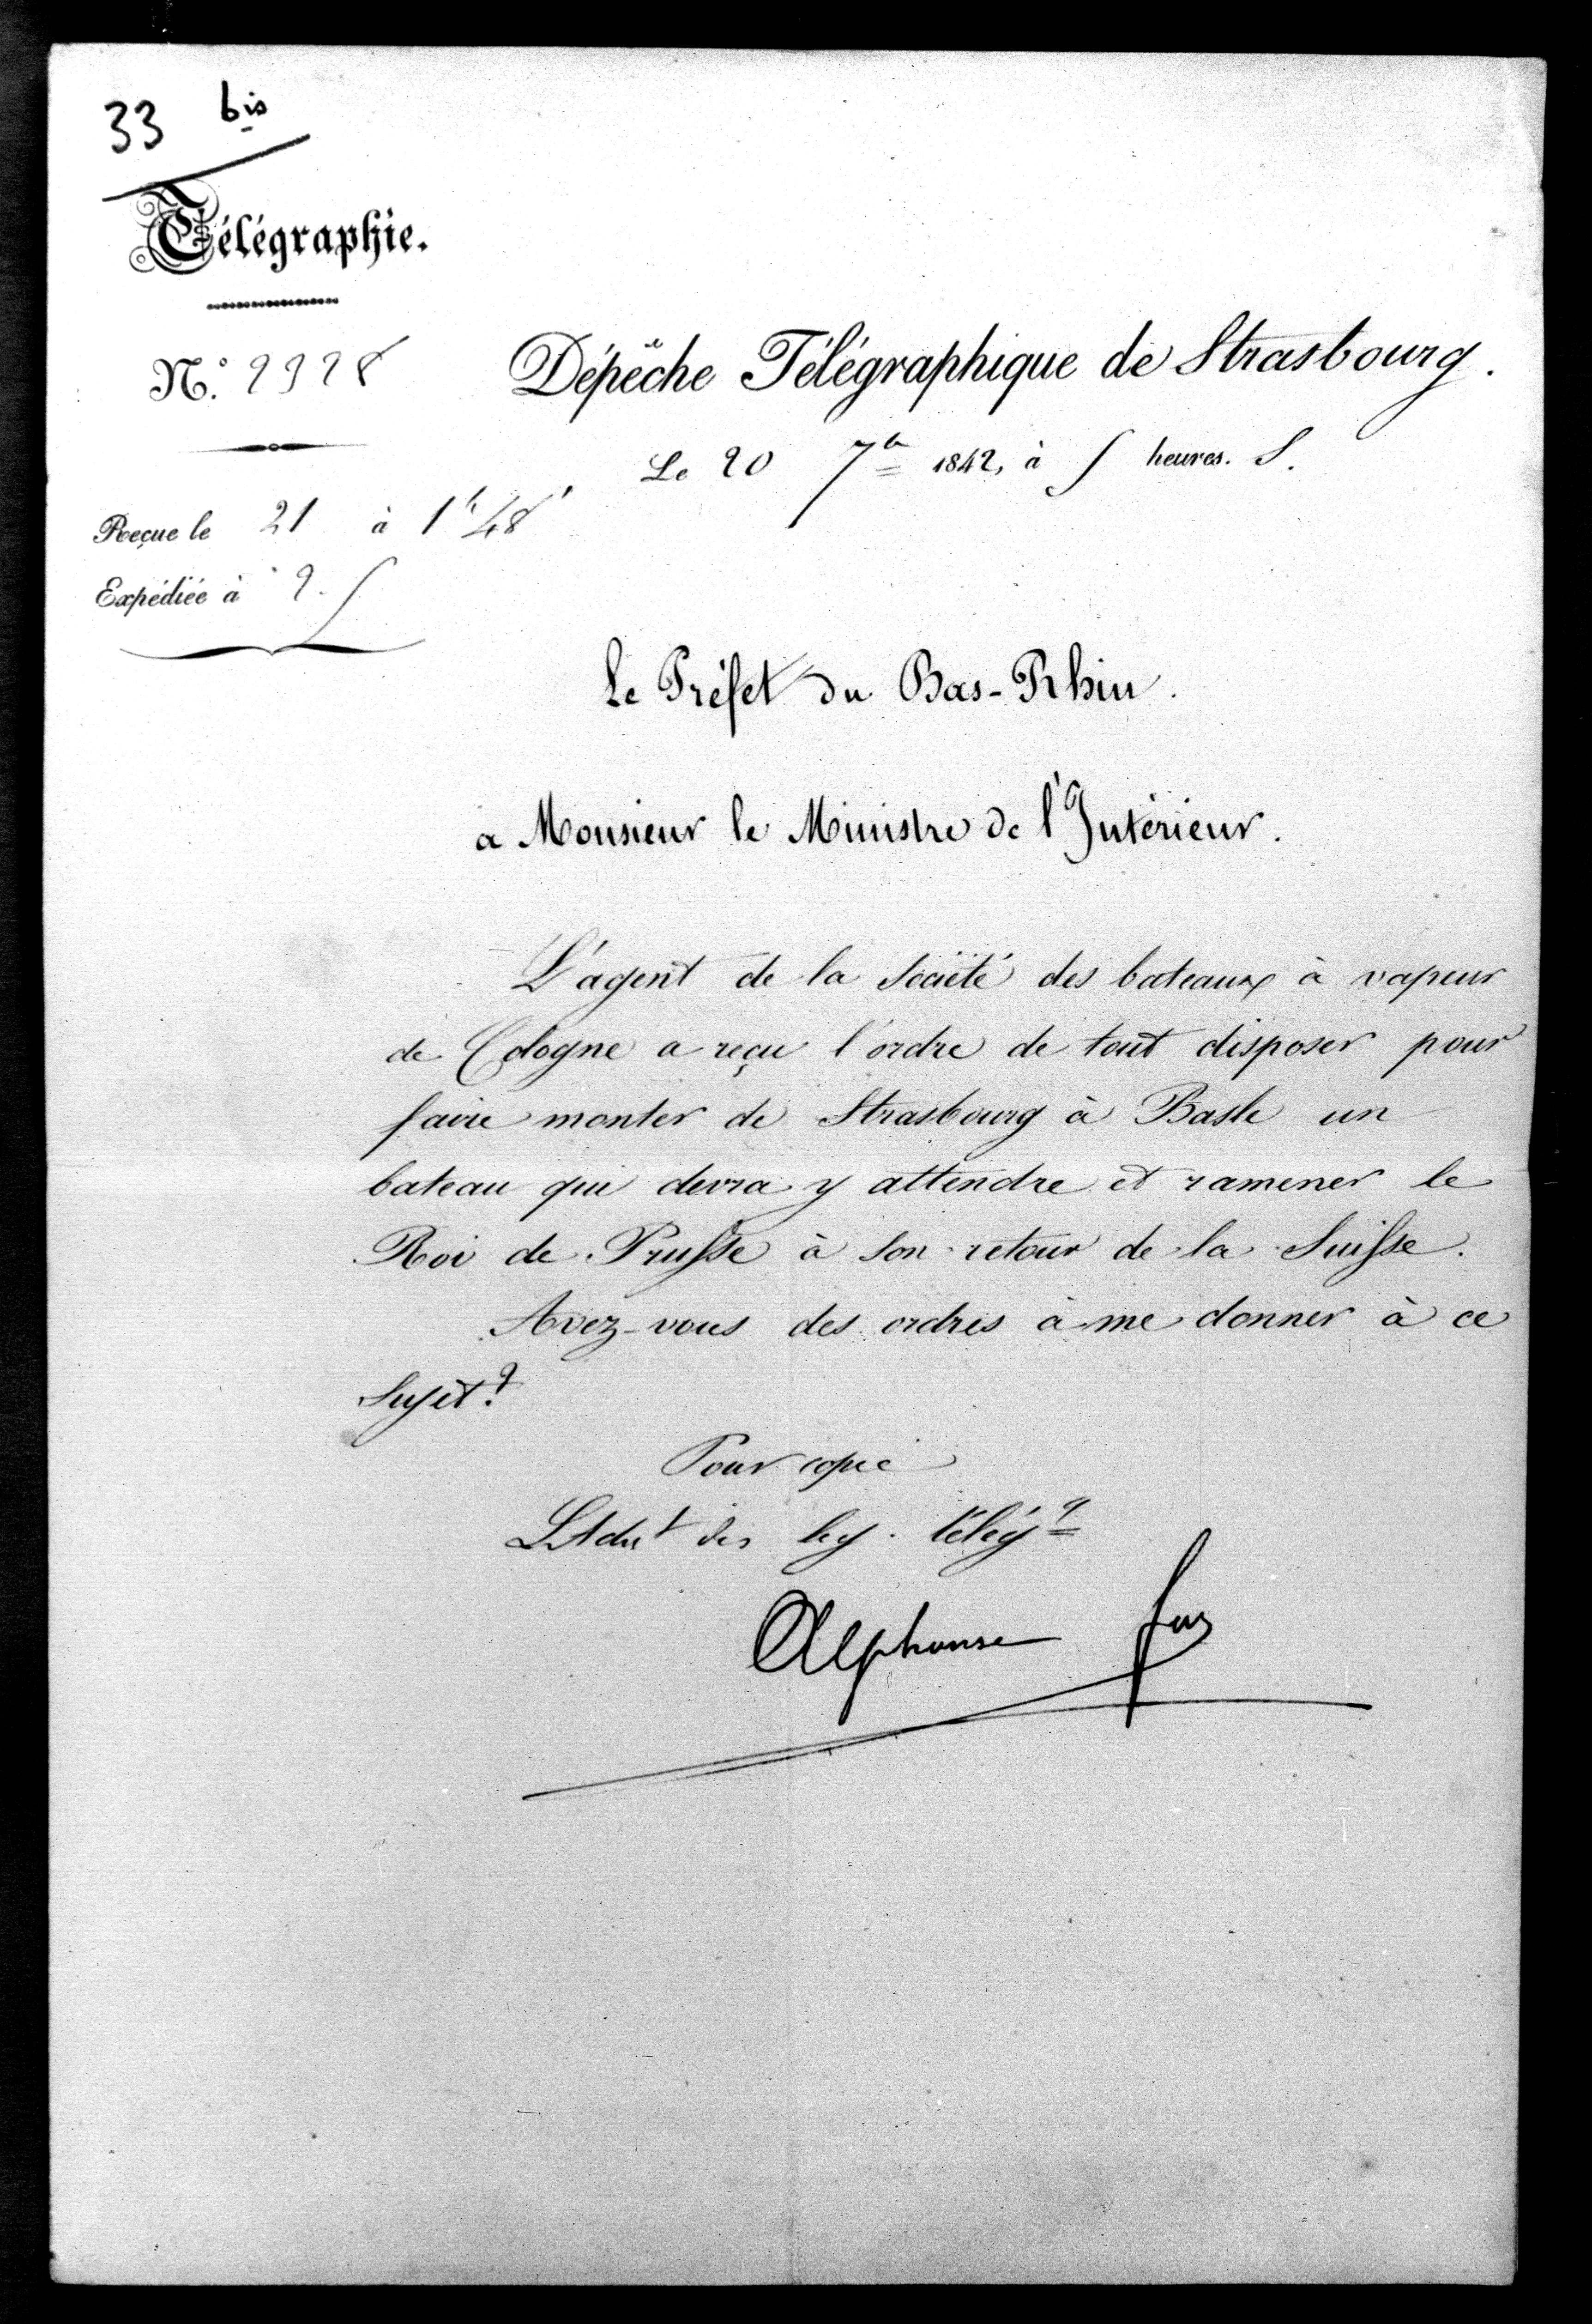 33 bis
Télégraphie.
N.° 2928
Dépêche Télégraphique de Strasbourg.
Le 20 7bre 1842, à 5 heures. S.
Reçue le 21 à 1h 48'
Expédiée à 2.
Le Préfet du Bas-Rhin.
a Monsieur le Ministre de l'Intérieur.
L'agent de la Société des bateaux à vapeur
de Cologne a reçu l'ordre de tout disposer pour
faire monter de Strasbourg à Basle un
bateau qui devra y attendre et ramener le
Roi de Prusse à son retour de la Suisse.
Avez-vous des ordres à me donner à ce
sujet?
Pour copie
L'Adm des lig. télégq
Alphonse Foy